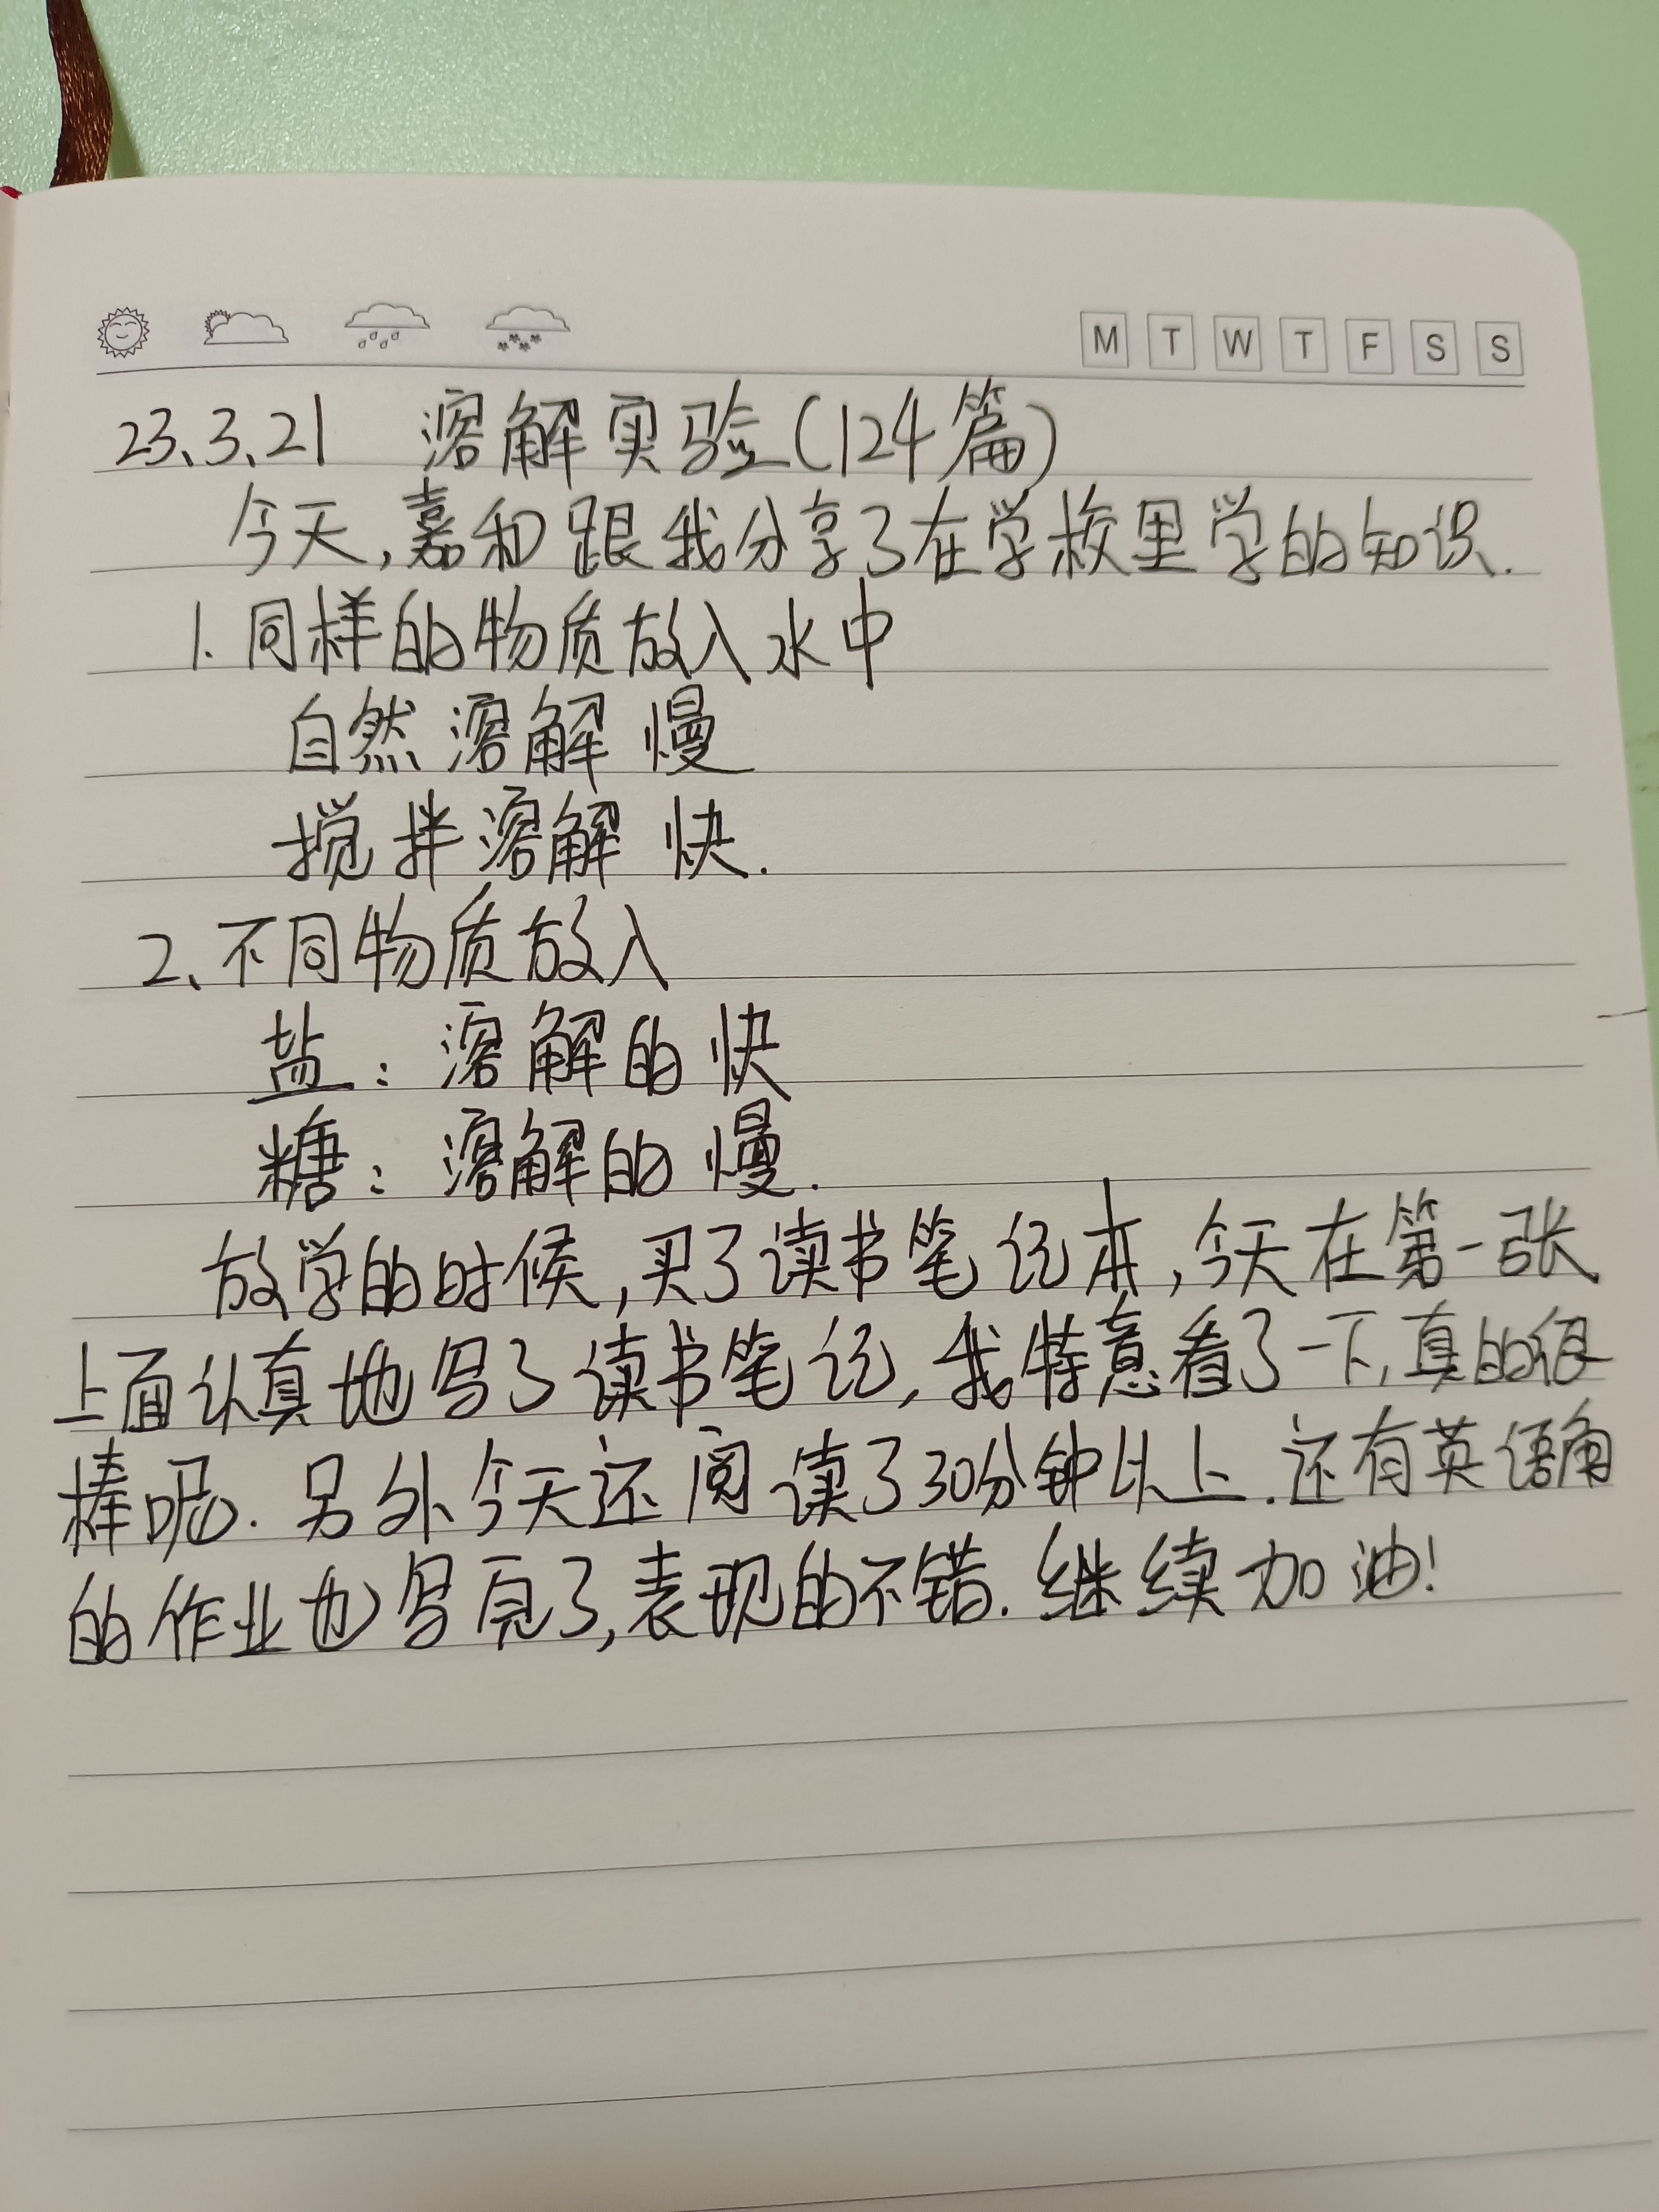 M T W T F S S
23、3、21 溶解实验(124篇)
今天,嘉和跟我分享了在学校里学的知识.
1. 同样的物质放入水中
自然溶解 慢
搅拌溶解 快.
2、不同物质放入
盐: 溶解的快
糖: 溶解的慢.
放学的时候,买了读书笔记本,今天在第一张
上面认真地写了读书笔记,我特意看了一下,真的很
棒呢. 另外今天还阅读了30分钟以上.还有英语角
的作业也写完了,表现的不错.继续加油!